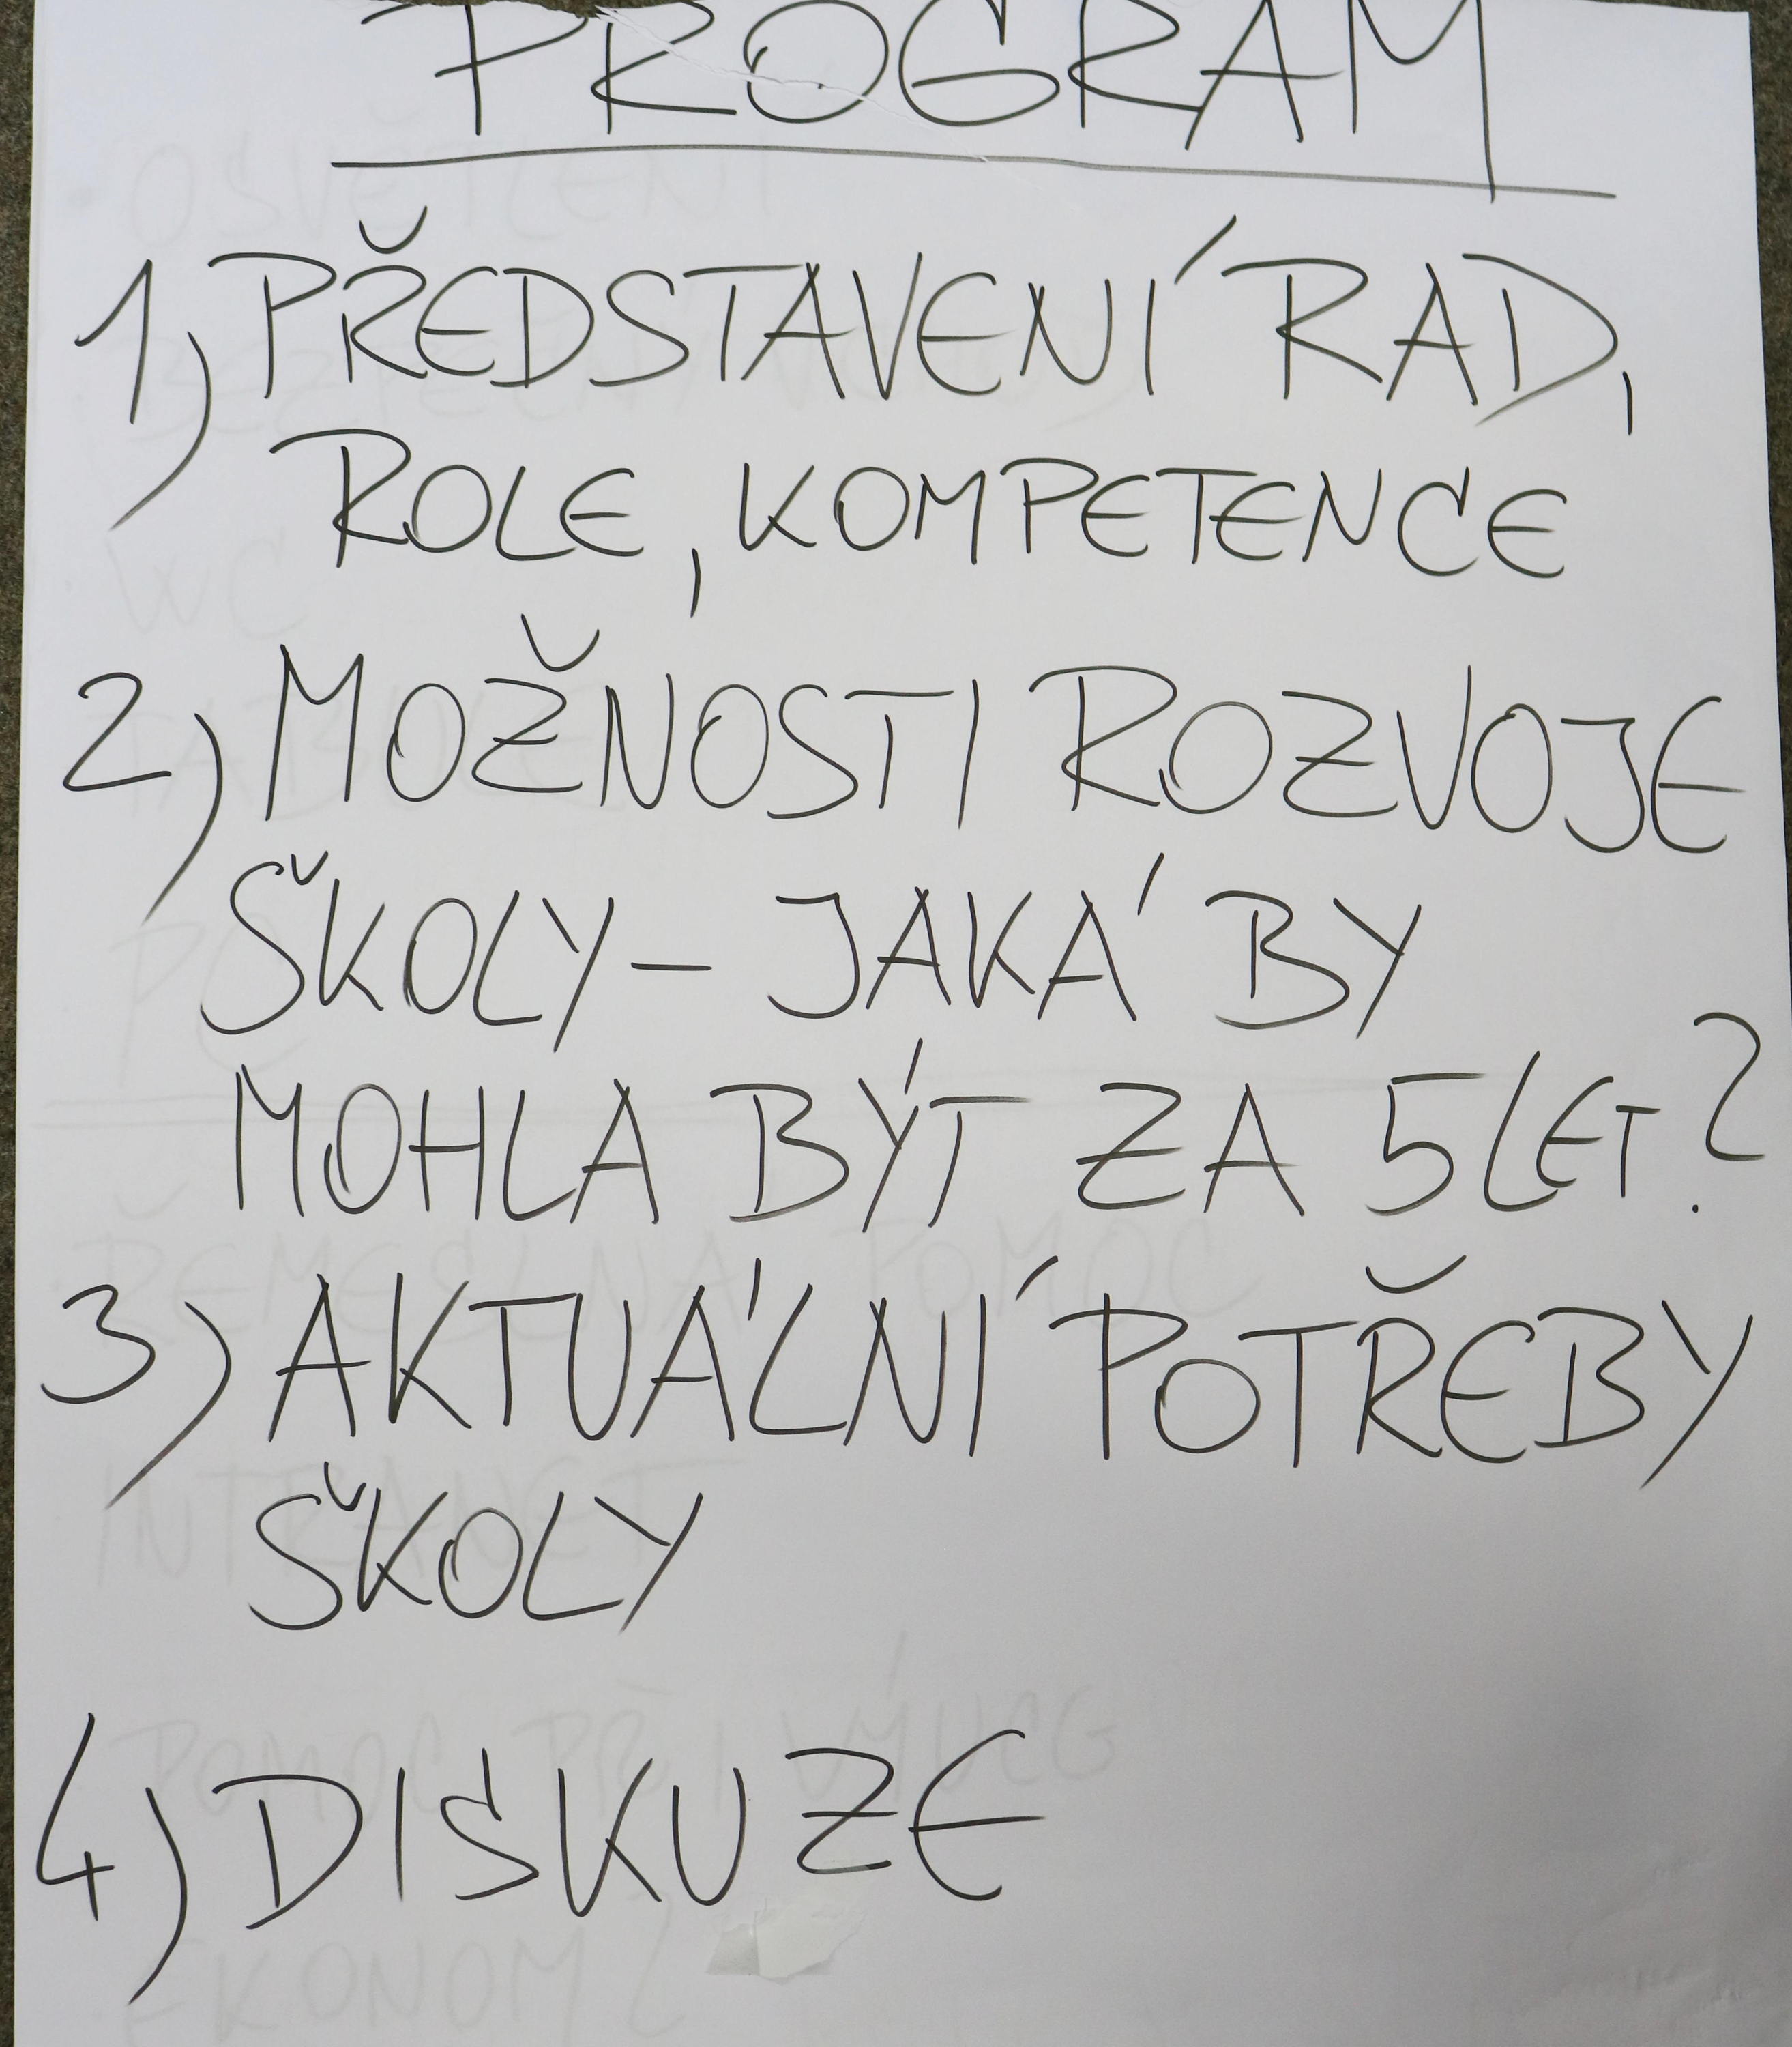 PROGRAM
1) PŘEDSTAVENÍ RAD,
ROLE, KOMPETENCE
2) MOŽNOSTI ROZVOJE
ŠKOLY – JAKÁ BY
MOHLA BÝT ZA 5 LET?
3) AKTUÁLNÍ POTŘEBY
ŠKOLY
4) DISKUZE